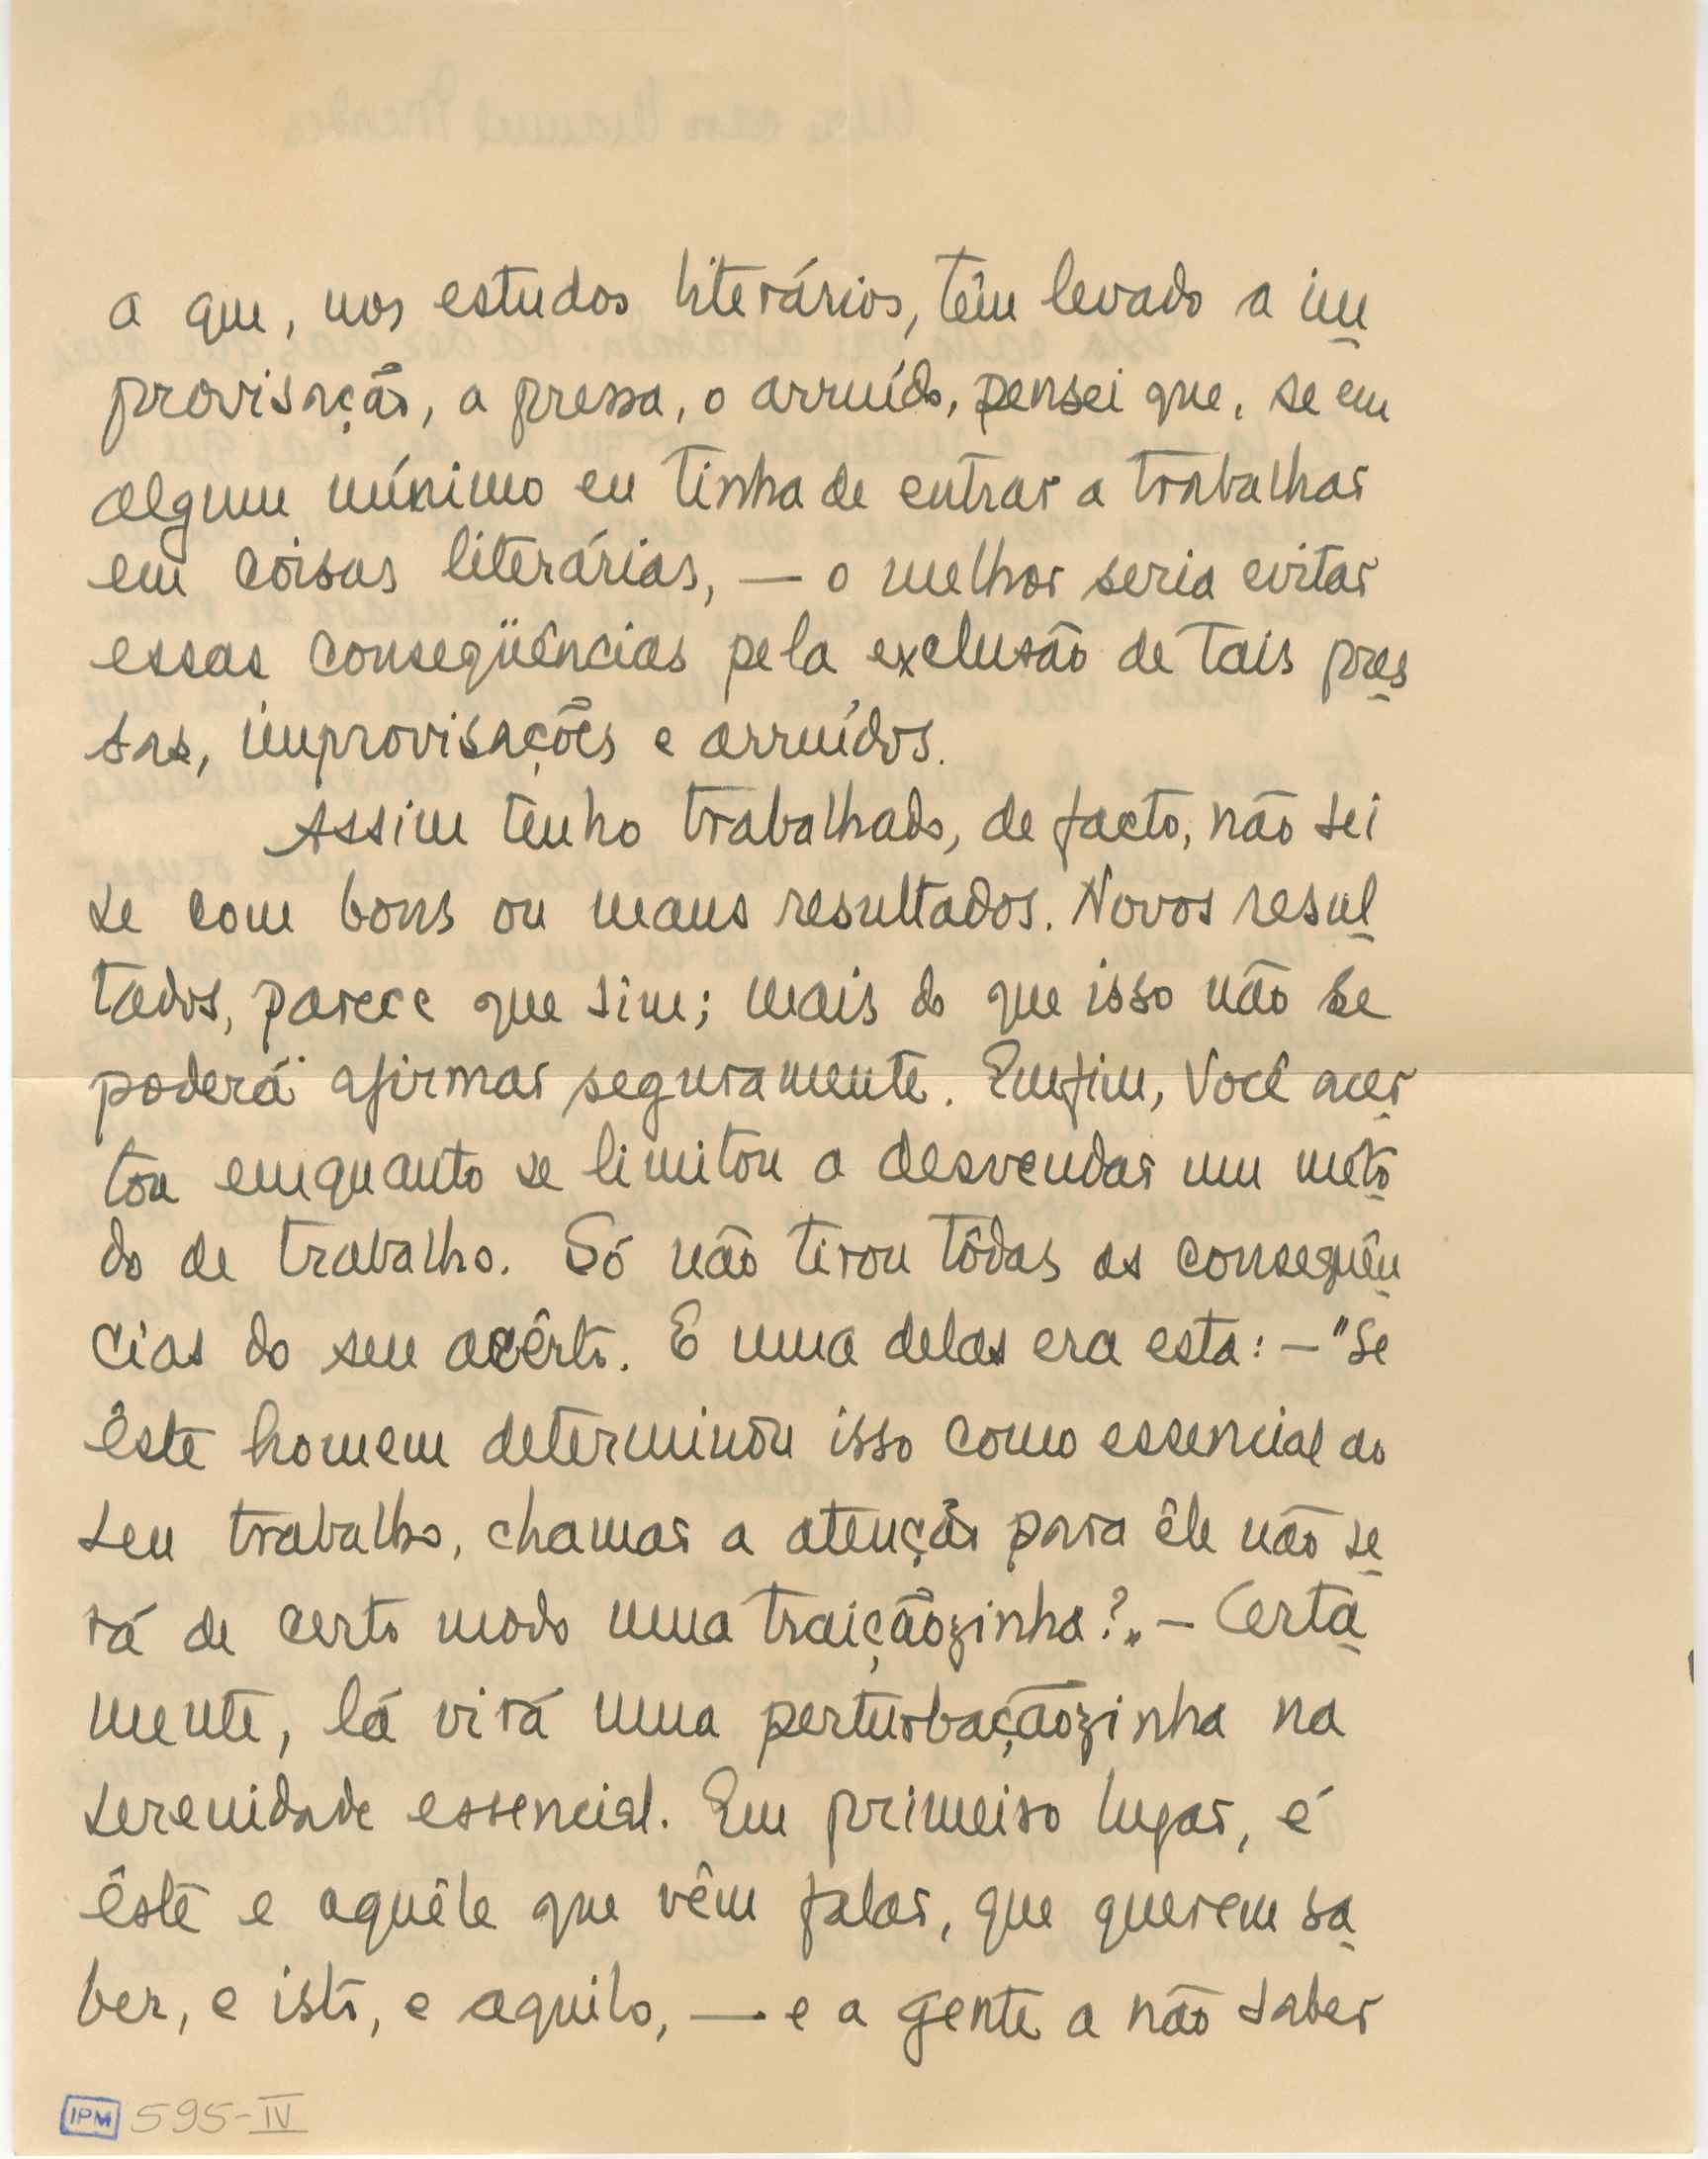 a que, nos estudos literários, têm levado a im
provisação, a pressa, o arruído, pensei que, se em
algum mínimo eu tinha de entrar a trabalhar
em coisas literárias, — o melhor seria evitar
essas conseqüências pela exclusão de tais pres
sas, improvisações e arruídos.
Assim tenho trabalhado, de facto, não sei
se com bons ou maus resultados. Novos resul
tados, parece que sim; mais do que isso não se
poderá afirmar seguramente. Emfim, Você acer
tou emquanto se limitou a desvendar um méto
do de trabalho. Só não tirou tôdas as conseqüên
cias do seu acêrto. E uma delas era esta: — "Se
êste homem determinou isso como essencial ao
seu trabalho, chamar a atenção para êle não se
rá de certo modo uma traiçãozinha?" — Certa
mente, lá virá uma perturbaçãozinha na
serenidade essencial. Em primeiro lugar, é
êste e aquêle que vêm falar, que querem sa
ber, e isto, e aquilo, — e a gente a não saber
IPM 595-IV